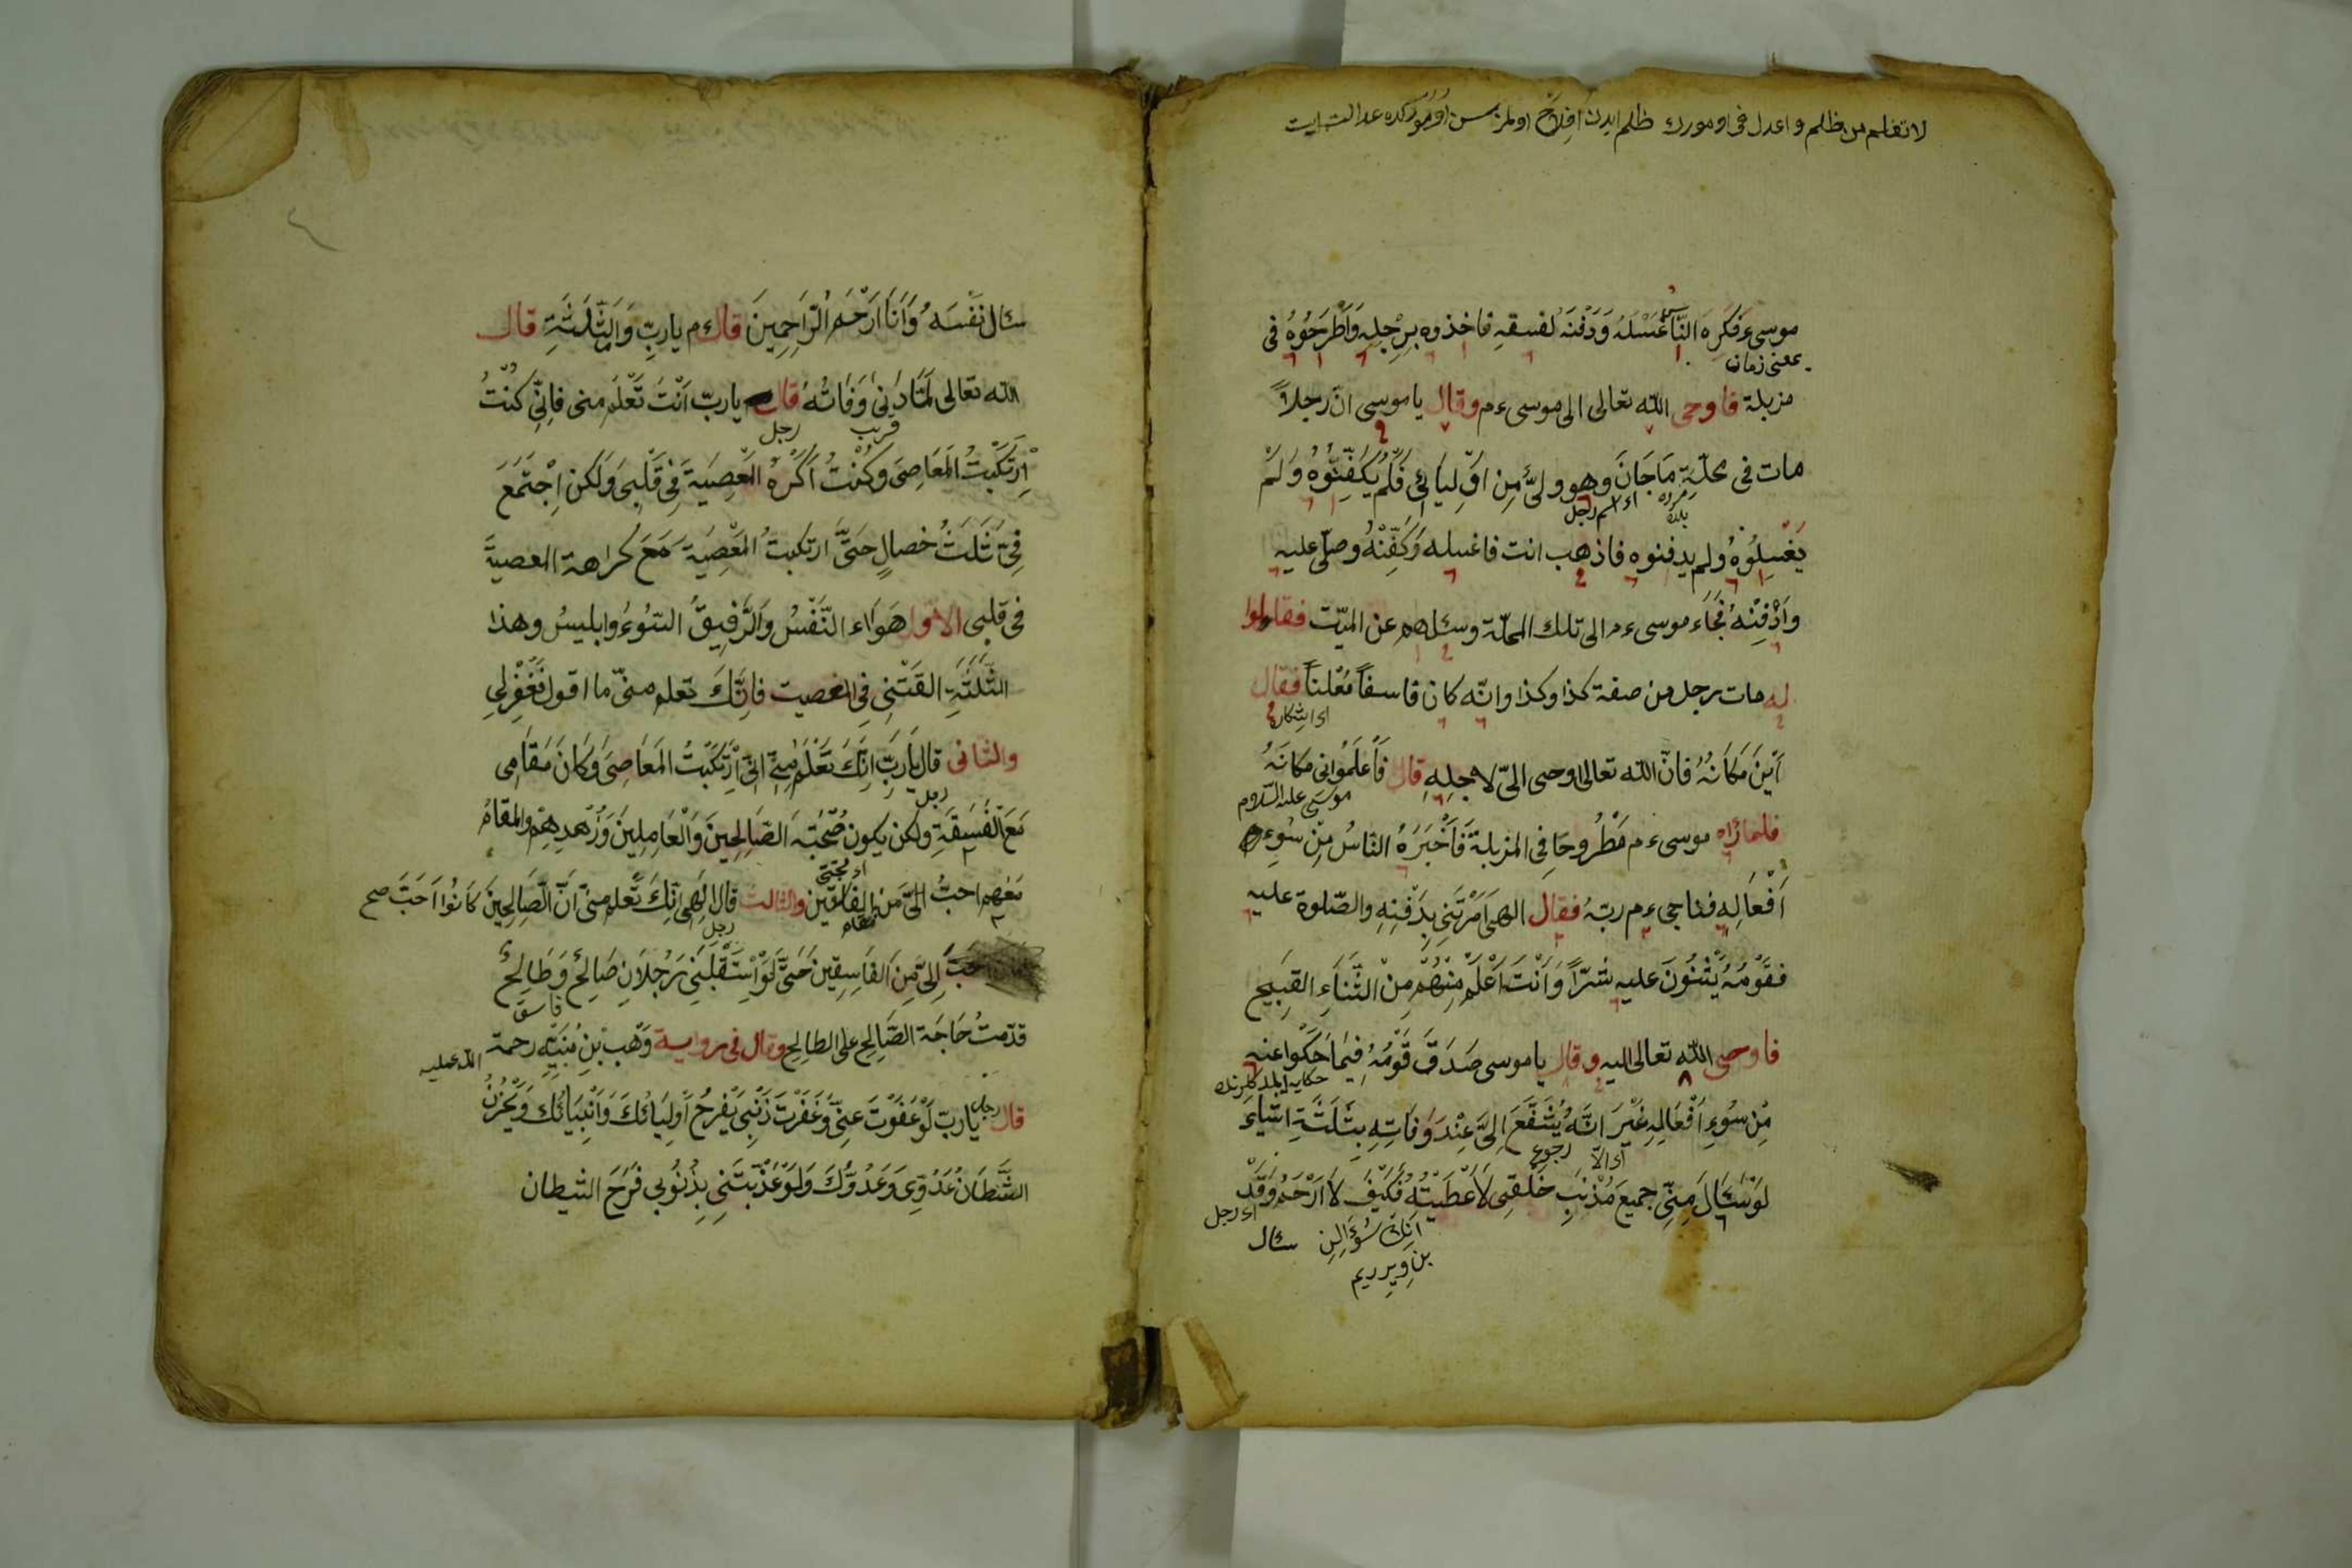 لا تظلم من ظلم و اعدل فى اومورك ظلم ايدن افلاح اولمز سن اومورکده عدالت ايت
موسى ء فكره النّاس غَسْلَهُ وَدَفْنَهُ لفسقهِ فاخذوه بِرِجْلِهِ وَاَطْرَحُوْهُ فى
بمعنى زمان
مزبلة فاوحى اللّه تعالى الى موسى ءم وقال يا موسى انّ رجلاً
مات فى محلّةِ مَاجَانَ وهو ولىّ مِن اَوْلِيائى فَلَمْ يُكَفِّنُوْهُ وَلَمْ
اى اسم رجل
يَغْسِلُوْهُ ولم يدفنوه فاذهب انت فاغسله وَكَفِّنْهُ وصلّى عليه
وَاَدْفِنْهُ فَجَاء موسى ءم الى تلك المحلّة وسئلهم عن الميّت فقالوا
له مات رجل من صفة كذا وكذا وانّه كان فاسقاً مُعْلناً فقال
اى اشكاره
اَيْنَ مَكَانُهُ فانّ اللّه تعالى اوحى الىّ لاجلِهِ قال فَاَعْلَمُوْانى مَكَانَهُ
موسى عليه السّلام
فلما رَاه موسى ءم مَطْرُوحَا فِى المزبلة فَاَخْبَرَهُ النّاسُ مِنْ سُوءِ
اَفْعَالِهِ فناجى ءم ربّهُ فقال الهى اَمَرْتَنِى بِدَفْنِهِ والصّلوة عليه
فقَوْمُهُ يُثْنُوْنَ عليه شَرّاً وَاَنْتَ اَعْلَمُ مِنْهُمْ مِنْ الثّنَاءِ القَبِيح
فاوحى اللّه تعالى اليه وقال يا موسى صَدَقَ قَوْمُهُ فِيْمَا حَكَوا عنه
مِنْ سُوءِ اَفْعَالِهِ غَيْرَ انّهُ يُشَفَّعَ اِلىَّ عِنْدَ وَفَاتِهِ بِثَلَثَةِ اشياءَ
اى الاّ رجوع
لَوْ سَئَالَ مِنِّى جميعَ مُذْنِبِ خَلْقِى لَاَعْطَيْتُهُ فَكَيْفَ لاَ اَرْحَمُهُ وَقَدْ
اى رجل
انك سُؤَالِنِ
بن ويريرم
سئال
سئال نَفْسَهُ وَاَنَا اَرْحَمُ الرّاحِمِينَ قال ءم يا ربِّ وَالثّلَثَةِ قال
اللّه تعالى لَمّا دَنىٰ وَفَاتُهُ قال يا ربّ اَنْتَ تَعْلَمُ منى فاِنِّى كُنْتُ
قريب
رجل
اِرْتَكَبْتُ المَعَاصِىَ وَكُنْتُ اَكْرَهُ المَعْصِيَةَ فِى قَلْبِى وَلَكن اِجْتَمَعَ
فِىَّ ثَلَثُ خصالٍ حَتّىَ ارتكبتُ المَعْصِيَةَ مَعَ كراهة المعصية
فى قلبى الاوّل هَوَاء النّفْسُ وَالرّفِيقُ السّوُءُ وابليسُ وهذا
الثّلَثَةِ القَتْنِى فِى المعصيت فاِنّكَ تعلم منىّ ما اقول فَغْفِرْلِى
والثانى قال يَارَبِّ اِنّكَ تَعْلَمُ مِنّى انّى اِرْتَكَبْتُ المَعَاصِىَ وَكَانَ مَقَامِى
رجل
مَعَ الْفَسَقَةِ ولكن يكون صُحْبَتِهَ الصّالِحِينَ وَالْعَامِلِينَ وَزُهْدِهِمْ والمقامُ
مَعَهم احبّ اِلىَّ مَنَ الفاسقين والثالث قال الهى انّكَ تَعْلم منىّ اَنّ الصّالِحِينَ كَانُوا اَحَبّ صح
رجل
اِلىَّ مِنَ الفَاسِقِين حَتّىَ لَوْ اِسْتَقْبَلَنِى رَجُلَانِ صَالِحٌ وَطَالِحٌ
فاسق
قدّمتُ حَاجَة الصّالِحِ على الطالِحِ وقال فى رواية وَهْب بْنِ مُنَبِّهِ رحمة اللّه عليه
قال يا ربّ لَوْ عَفَوْتَ عنِىّ وَغَفَرْتَ ذَنْبِى يَفْرَحُ اَولِيَائكَ وَاَنْبِيَائكَ وَيَحْزُنْ
رجل
الشّيطَانُ عَدُوِّى وَعَدُوّكَ وَلَوْ عَذّبْتَنِى بِذُنُوبِى فَرَحَ الشيطان